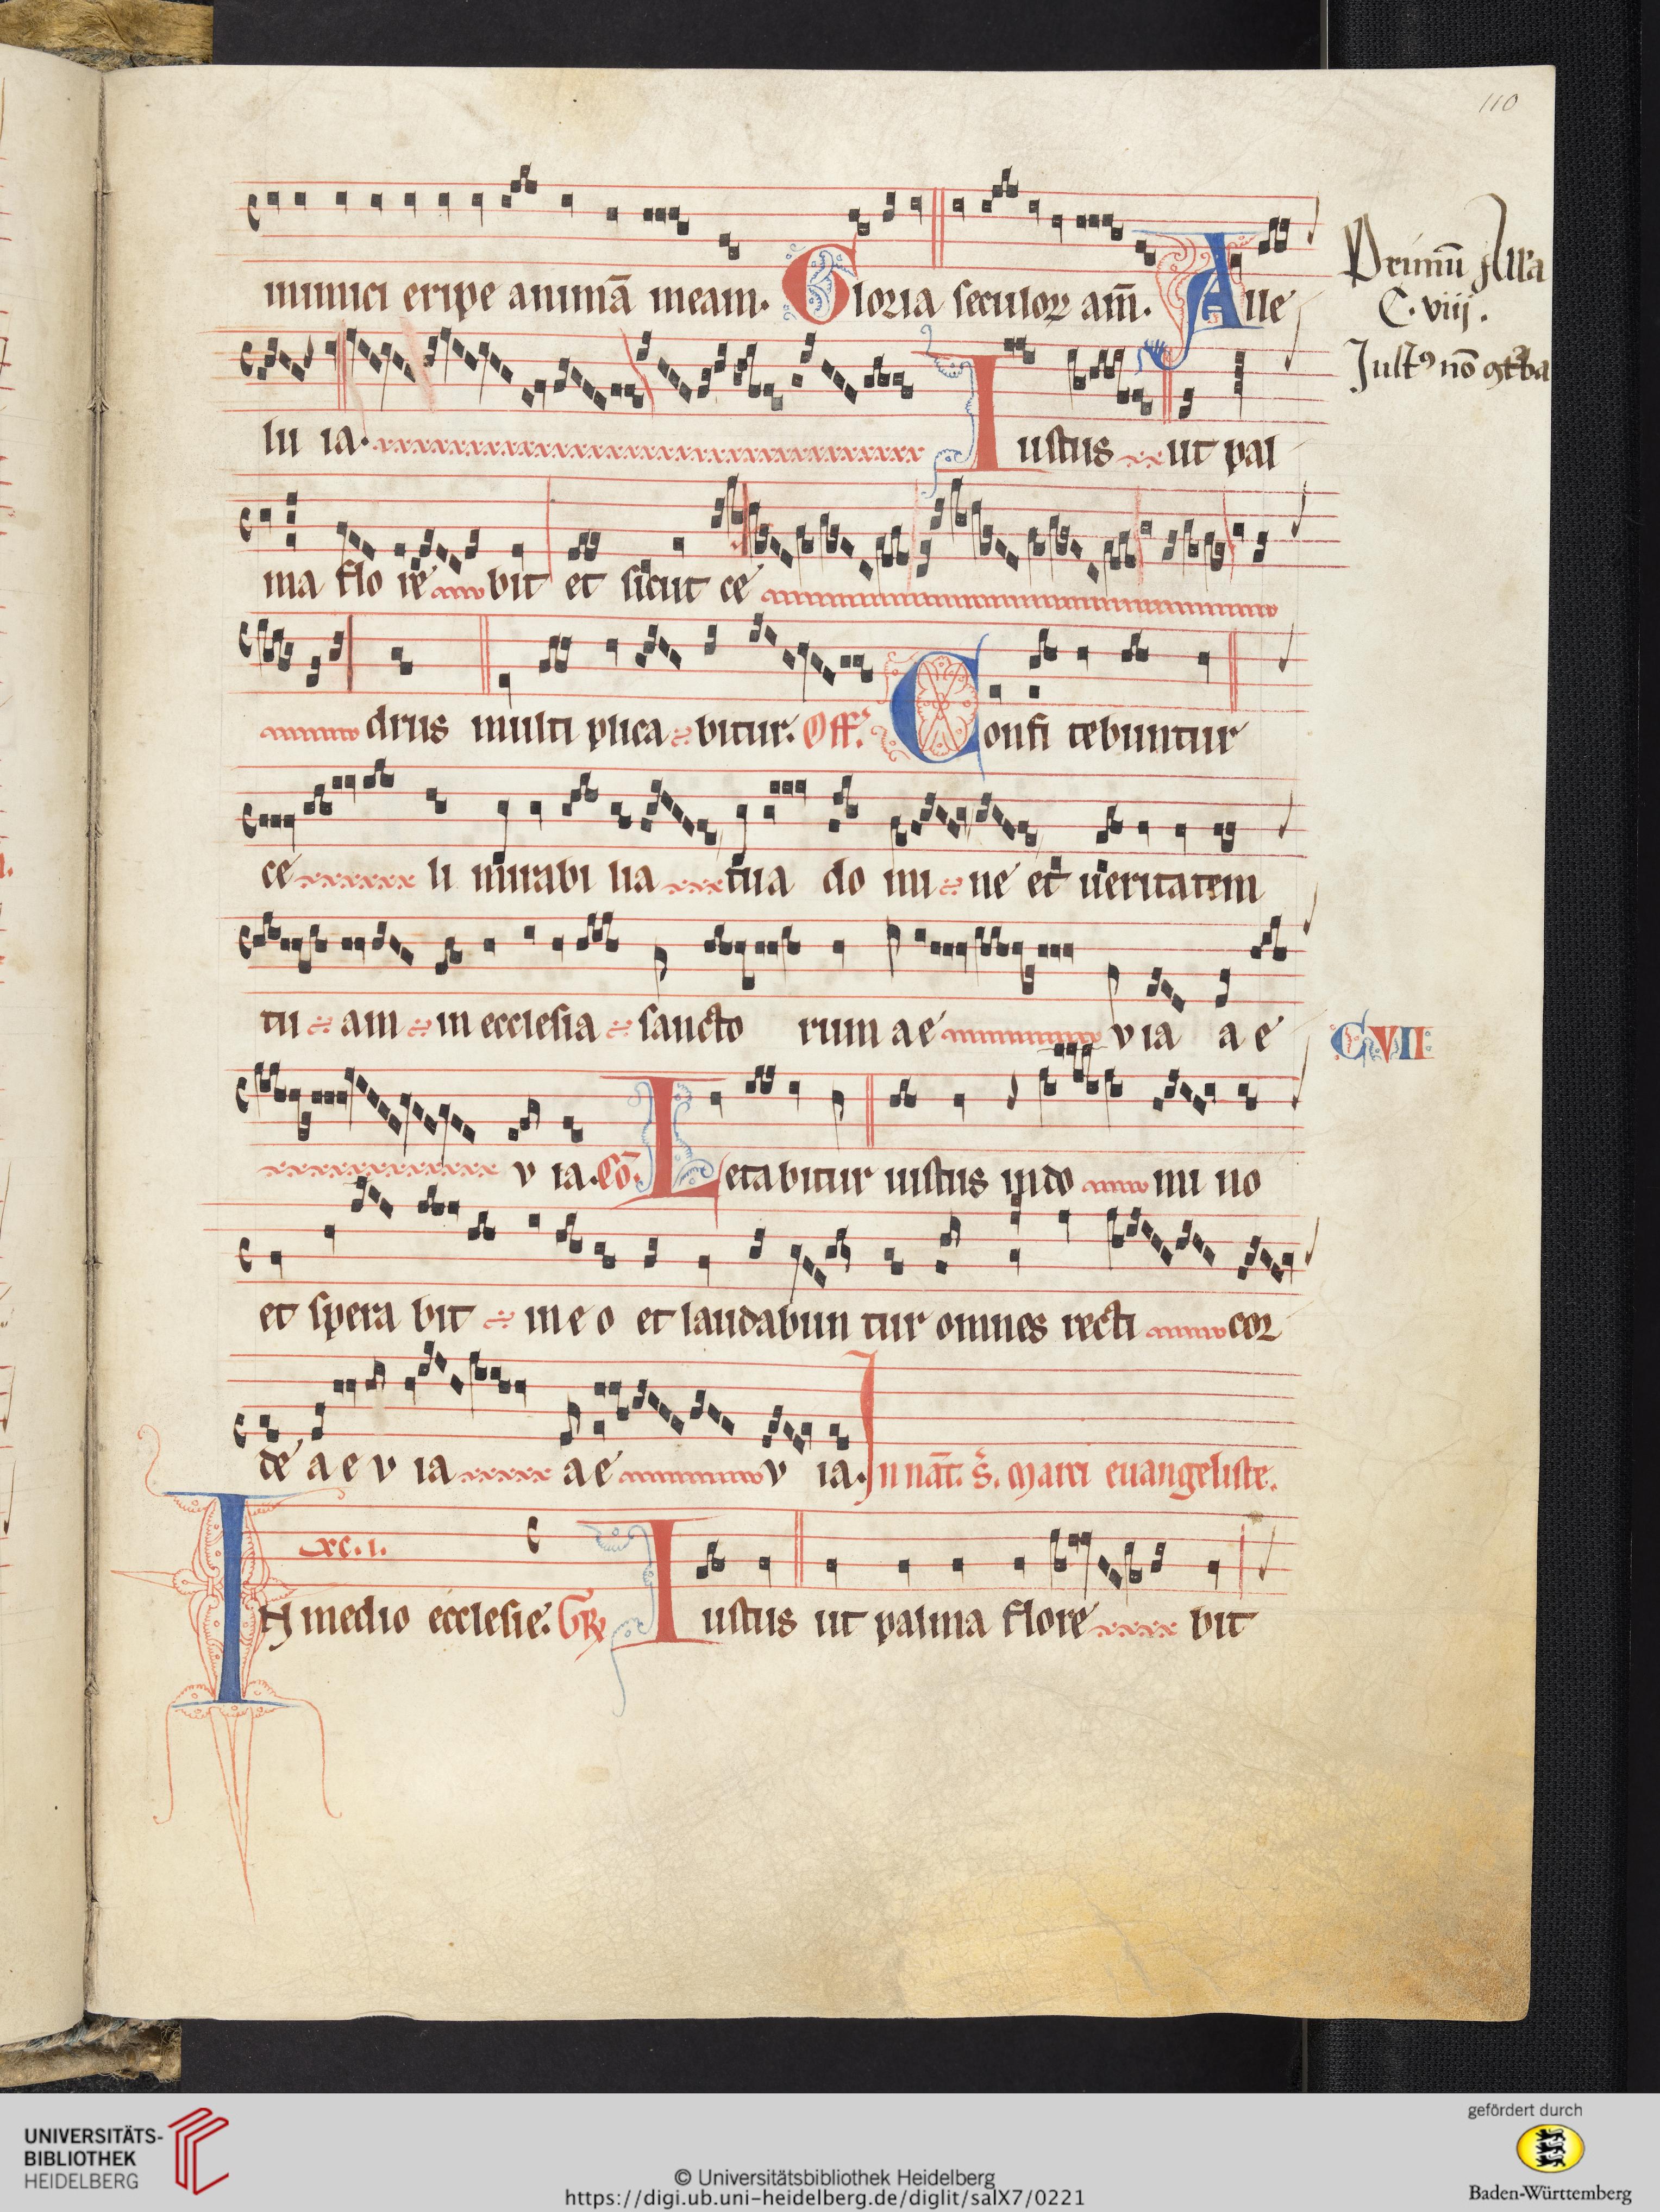 110
inimici eripe animā meam. Gloria seculoꝝ am̄. Alle
Primū All'a
C. viij.
Justꝰ nō ꝯt'ba
lu ia. Iustus ut pal
ma flo re bit et sicut ce
drus multi plica bitur. Off. Confi tebuntur
ce li mirabi lia tua do mi ne et ueritatem
tu am in ecclesia sancto rum a e v ia a e
CVII
v ia. Cō. Letabitur iustus in do mi no
et spera bit in e o et laudabun tur omnes recti cor
de a e v ia a e v ia. In nat̄. s̄. Marci euangeliste.
xc. i.
IN medio ecclesie. Gr̄ Iustus ut palma flore bit
UNIVERSITÄTS-
BIBLIOTHEK
HEIDELBERG
© Universitätsbibliothek Heidelberg
https://digi.ub.uni-heidelberg.de/diglit/salX7/0221
gefördert durch
Baden-Württemberg